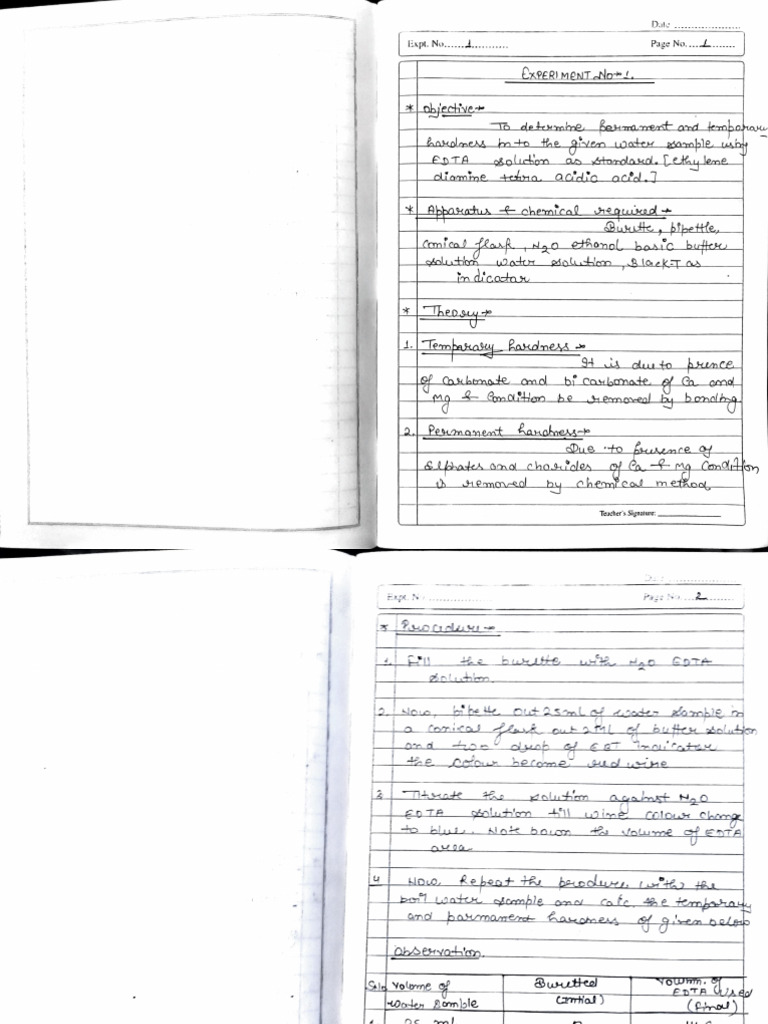 Date ....................
Expt. No......1...........
Page No....1........
EXPERIMENT No→1.
* Objective→
To determine Parmanent and temparary
hardness in to the given water sample using
EDTA solution as standard. [ethylene
diamine tetra acidic acid.]
* Apparatus & chemical required→
Burette, pipettle,
conical flask, N20 ethanol basic buffer
solution water solution, Black-T as
indicatar
* Theory→
1. Temparary hardness→
It is due to prence
of carbonate and bi carbonate of Ca and
Mg & Condition be removed by bonding
2. Permanent hardness→
Due to presence of
Sulphates and chorides of Ca & Mg Condition
is removed by chemical method
Teacher's Signature:
Date
Expt. No. ................
Page No....2........
* Procedure→
1. Fill the burette with N20 EDTA
solution.
2. Now, pipette out 25ml of water sample in
a conical flask out 2ML of buffer solution
and two drop of EBT indicator
the colour become red wire
3 Titrate the solution against N20
EDTA solution till wine colour change
to blue. Note down the volume of EDTA
area
4 Now, Repeat the produre with the
boil water sample and calc. the temporary
and parmanent harness of given below
Observation.
volume of
water Sample
Buretted
(intial)
EDTA used
(final)
25 ml